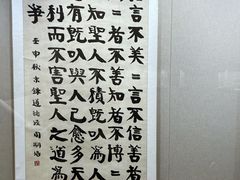 言不美=言不信
者不善知者不博=
知聖人不積既以為人
有既以與人己愈多天
利而不害聖人之道為
爭
壬申秋京
道德經